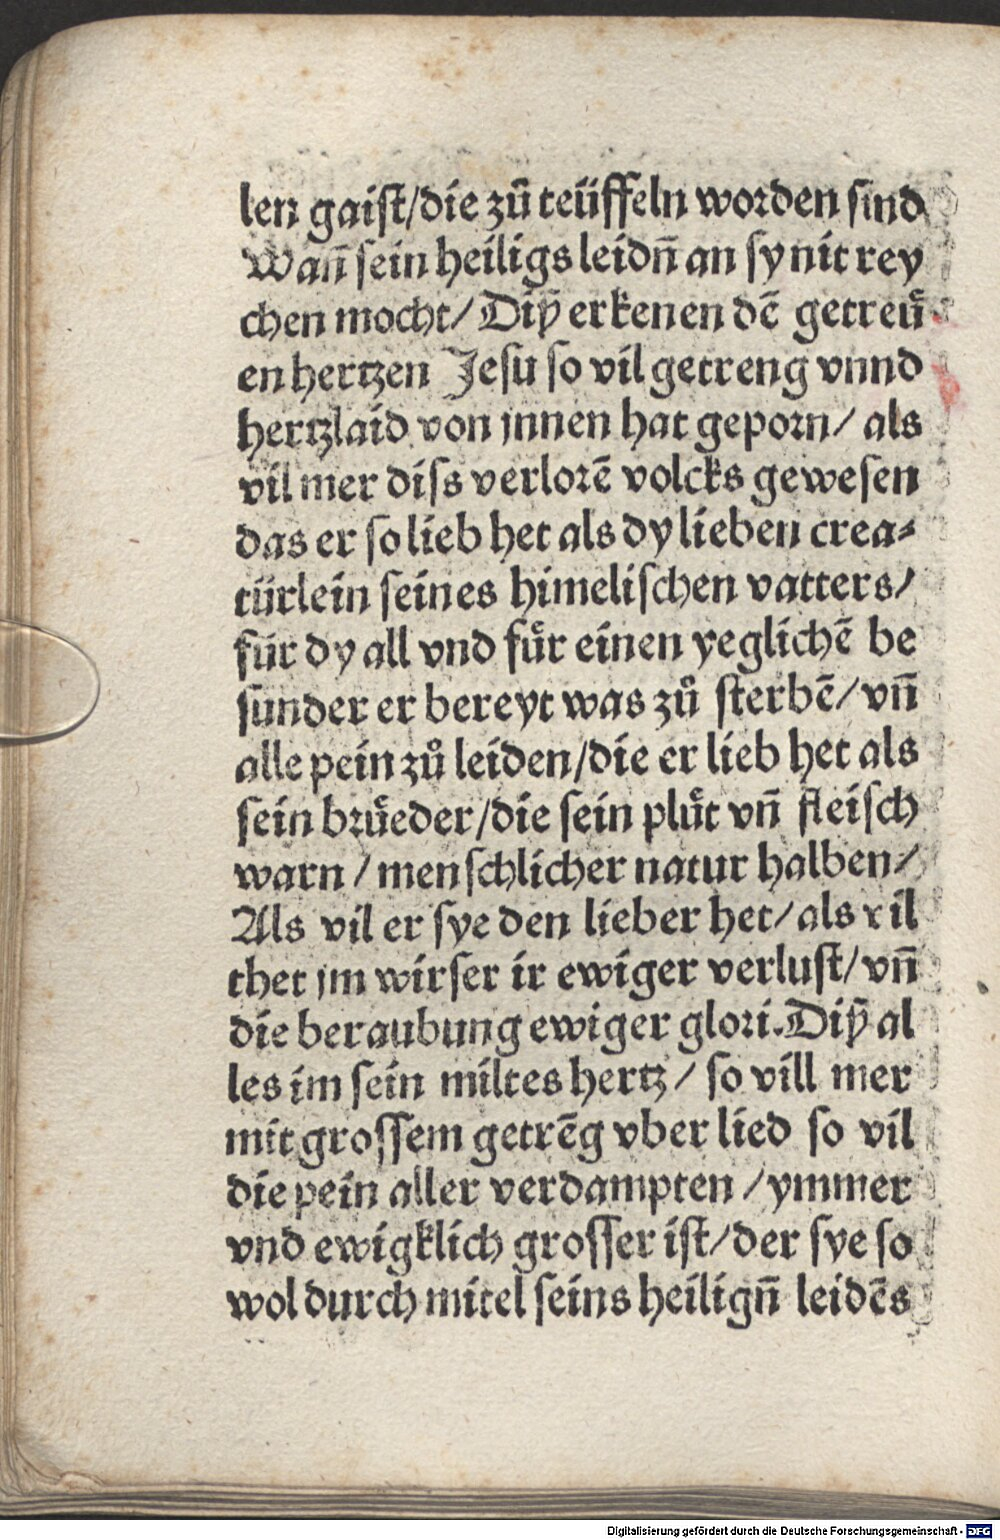 len gaist/die zů teüffeln worden sind
Wan̄ sein heiligs leidn̄ an sy nit rey
chen mocht/ Diß erkenen dē getreů
en hertzen Jesu so vil getreng vnnd
hertzlaid von jnnen hat geporn/ als
vil mer diss verlorē volcks gewesen
das er so lieb het als dy lieben crea⸗
türlein seines himelischen vatters/
für dy all vnd fůr einen yeglichē be
sunder er bereyt was zů sterbē/ vn̄
alle pein zů leiden/die er lieb het als
sein brůeder/die sein plůt vn̄ fleisch
warn / menschlicher natur halben/
Als vil er sye den lieber het/ als vil
thet jm wirser ir ewiger verlust/ vn̄
die beraubung ewiger glori. Diß al
les im sein miltes hertz / so vill mer
mit grossem getrēg vber lied so vil
die pein aller verdampten / ymmer
vnd ewigklich grosser ist/ der sye so
wol durch mitel seins heilign̄ leidēs
Digitalisierung gefördert durch die Deutsche Forschungsgemeinschaft - DFG